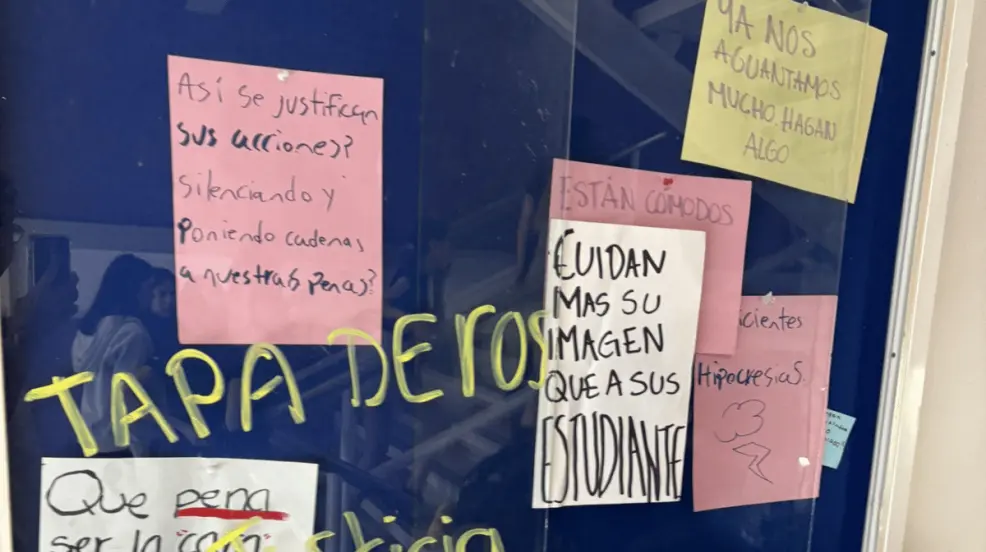 YA NOS
AGUANTAMOS
MUCHO. HAGAN
ALGO
Así se justifican
sus acciones?
silenciando y
Poniendo cadenas
a nuestras penas?
ESTÁN CÓMODOS
CUIDAN
MAS SU
IMAGEN
QUE A SUS
ESTUDIANTE
icientes
Hipocresias.
TAPADEROS
Que pena
ser la
sticia